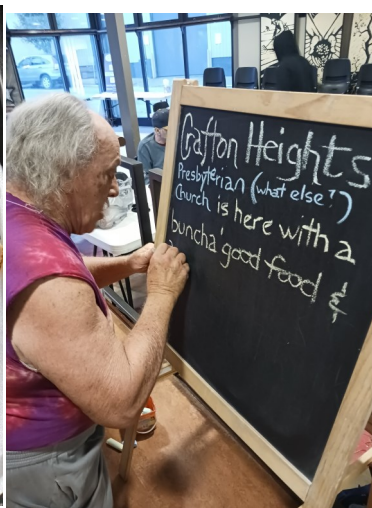 Crafton Heights
Presbyterian (what else?)
Church is here with a
buncha' good food &